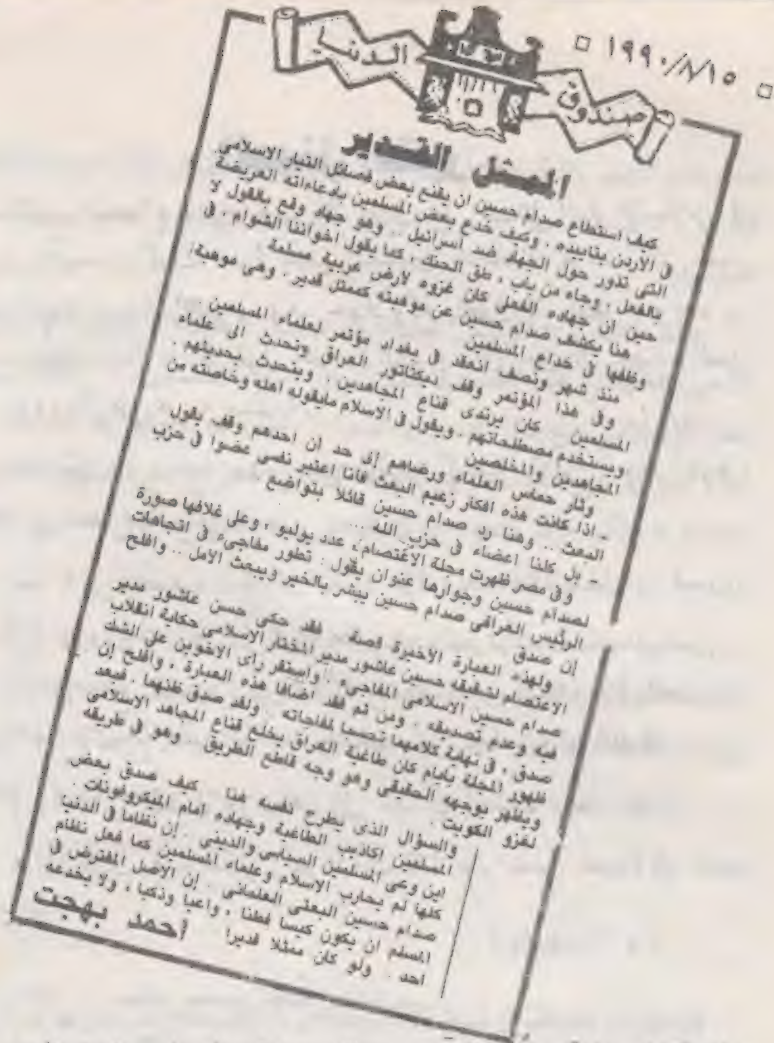 □ ١٩٩٠/٨/١٥ □
صندوق الدنيا
الممثل القدير
كيف استطاع صدام حسين ان يقنع بعض فصائل التيار الاسلامى
فى الأردن بتاييده ، وكيف خدع بعض المسلمين بادعاءاته العريضة
التى تدور حول الجهاد ضد اسرائيل .. وهو جهاد وقع بالقول لا
بالفعل ، وجاء من باب ، طق الحنك ، كما يقول اخواننا الشوام ، فى
حين أن جهاده الفعلى كان غزوه لارض عربية مسلمة
هنا يكشف صدام حسين عن موهبته كممثل قدير . وهى موهبة
وظفها فى خداع المسلمين
منذ شهر ونصف انعقد فى بغداد مؤتمر لعلماء المسلمين
وفى هذا المؤتمر وقف ديكتاتور العراق وتحدث الى علماء
المسلمين كان يرتدى قناع المجاهدين . ويتحدث بحديثهم .
ويستخدم مصطلحاتهم . ويقول فى الاسلام مايقوله اهله وخاصته من
المجاهدين والمخلصين
وثار حماس العلماء ورضاهم إلى حد ان احدهم وقف يقول
ـ اذا كانت هذه افكار زعيم البعث فانا اعتبر نفسى عضوا فى حزب
البعث .. وهنا رد صدام حسين قائلا بتواضع
ـ بل كلنا اعضاء فى حزب الله ...
وفى مصر ظهرت مجلة الاعتصام ، عدد يوليو ، وعلى غلافها صورة
لصدام حسين وجوارها عنوان يقول . تطور مفاجىء فى اتجاهات
الرئيس العراقى صدام حسين يبشر بالخير ويبعث الامل .. وافلح
إن صدق
ولهذه العبارة الأخيرة قصة فقد حكى حسن عاشور مدير
الاعتصام لشقيقه حسين عاشور مدير المختار الاسلامى حكاية انقلاب
صدام حسين الاسلامى المفاجىء . واستقر رأى الاخوين على الشك
فيه وعدم تصديقه . ومن ثم فقد اضافا هذه العبارة ، وافلح إن
صدق ، فى نهاية كلامهما تحسبا لمفاجاته . ولقد صدق ظنهما . فبعد
ظهور المجلة بايام كان طاغية العراق يخلع قناع المجاهد الاسلامى
ويظهر بوجهه الحقيقى وهو وجه قاطع الطريق . وهو فى طريقه
لغزو الكويت .
والسؤال الذى يطرح نفسه هنا .. كيف صدق بعض
المسلمين اكاذيب الطاغية وجهاده امام الميكروفونات .
اين وعى المسلمين السياسى والدينى . إن نظاما فى الدنيا
كلها لم يحارب الاسلام وعلماء المسلمين كما فعل نظام
صدام حسين البعثى العلمانى . إن الأصل المفترض فى
المسلم ان يكون كيسا فطنا ، واعيا وذكيا ، ولا يخدعه
احد . ولو كان ممثلا قديرا
أحمد بهجت